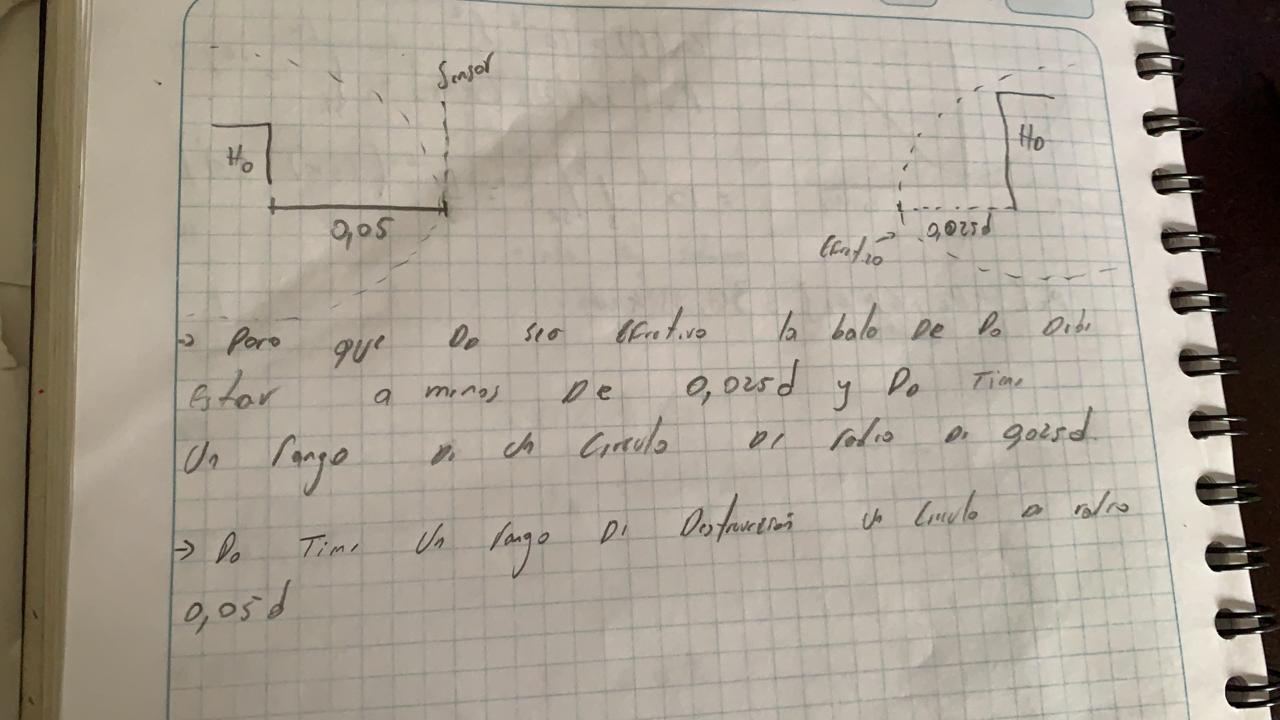 Sensor
Ho
Ho
0,05
0,025d
Efectivo
→ Para que Do sea efectivo la bala de Do debe
Estar a menos De 0,025d y Do Tiene
Un rango De un Circulo De radio De 0,025d.
→ Do Tiene Un rango De Destrucción un Circulo de radio
0,05d